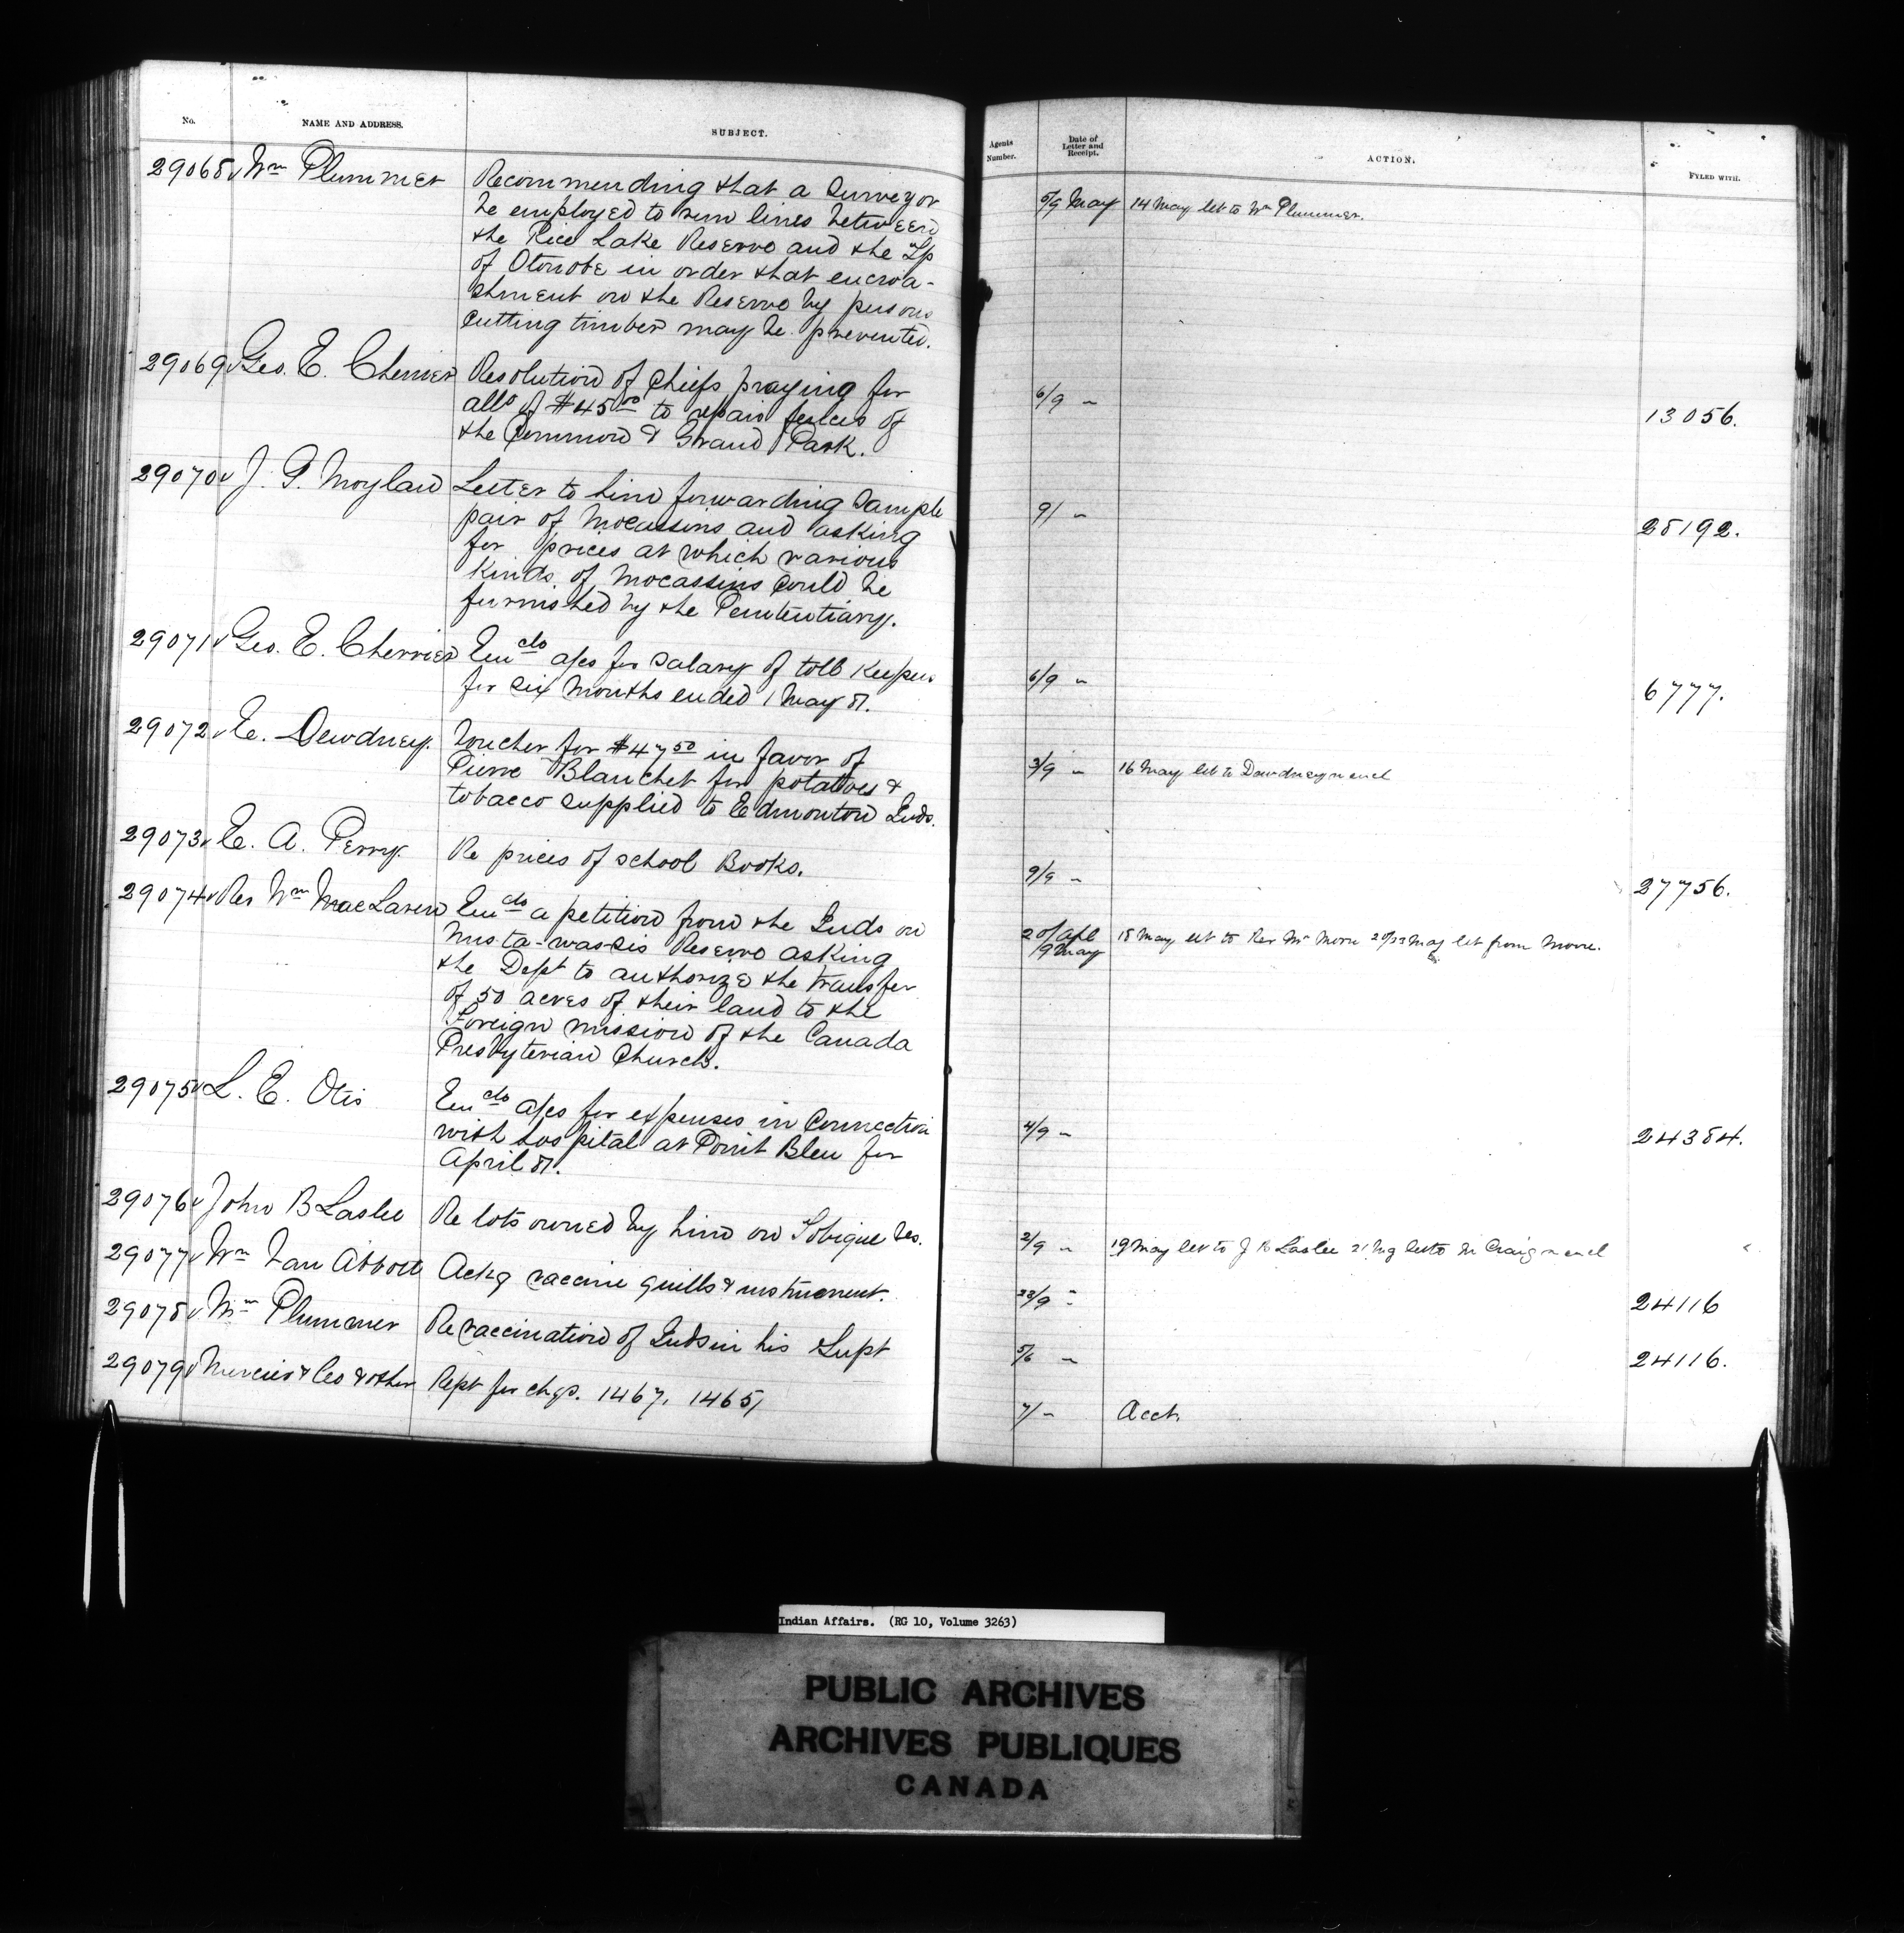 No. NAME AND ADDRESS. SUBJECT. Agents Number. Date of Letter and Receipt. ACTION. FYLED WITH.
29068 Wm Plummer Recommending that a Surveyor 5/9 May 14 May let to Wm Plummer.
be employed to run lines between
the Rice Lake Reserve and the Tp
of Otonobe in order that encroa-
chment on the Reserve by persons
cutting timber may be prevented.
29069 Geo. E. Cherrier Resolution of Chiefs praying for 6/9 " 13056.
allo of $45 00 to repair fences of
the Common & Grand Park.
29070 J. G. Moylan Letter to him forwarding Sample 9/ " 28192.
pair of Mocassins and asking
for prices at which various
kinds of Mocassins could be
furnished by the Penitentiary.
29071 Geo. E. Cherrier Encclo a/cs for Salary of toll Keeper 6/9 " 6777.
for six months ended 1 May 81.
29072 E. Dewdney. Voucher for $47 50 in favor of 3/9 " 16 May let to Dewdney n encl
Pierre Blanchet for potatoes &
tobacco supplied to Edmonton Inds.
29073 E. A. Perry. Re prices of School Books. 9/9 " 27756.
29074 Rev Wm MacLaren Encclo a petition from the Inds on 20/Apl 9 May 18 May let to Rev Mr Moore 20/23 May let from Moore.
Mista-was-sis Reserve asking
the Dept to authorize the transfer
of 50 acres of their land to the
Foreign mission of the Canada
Presbyterian Church.
29075 L. E. Otis Encclo a/cs for expenses in Connection 4/9 " 24384.
with hospital at Point Bleu for
April 81.
29076 John B Laslee Re lots owned by him on Tobique Res. 2/9 " 19 May let to J B Laslee 21 let to Mr Craig n encl
29077 Wm Van Abbott Ackg vaccine quills & instrument. 28/9 " 24116
29078 Wm Plummer Re vaccination of Inds in his Supt 5/6 " 24116.
29079 Mercier & Co & other Rept for chqs. 1467, 1465/ 7/ " Acct.
Indian Affairs. (RG 10, Volume 3263)
PUBLIC ARCHIVES
ARCHIVES PUBLIQUES
CANADA